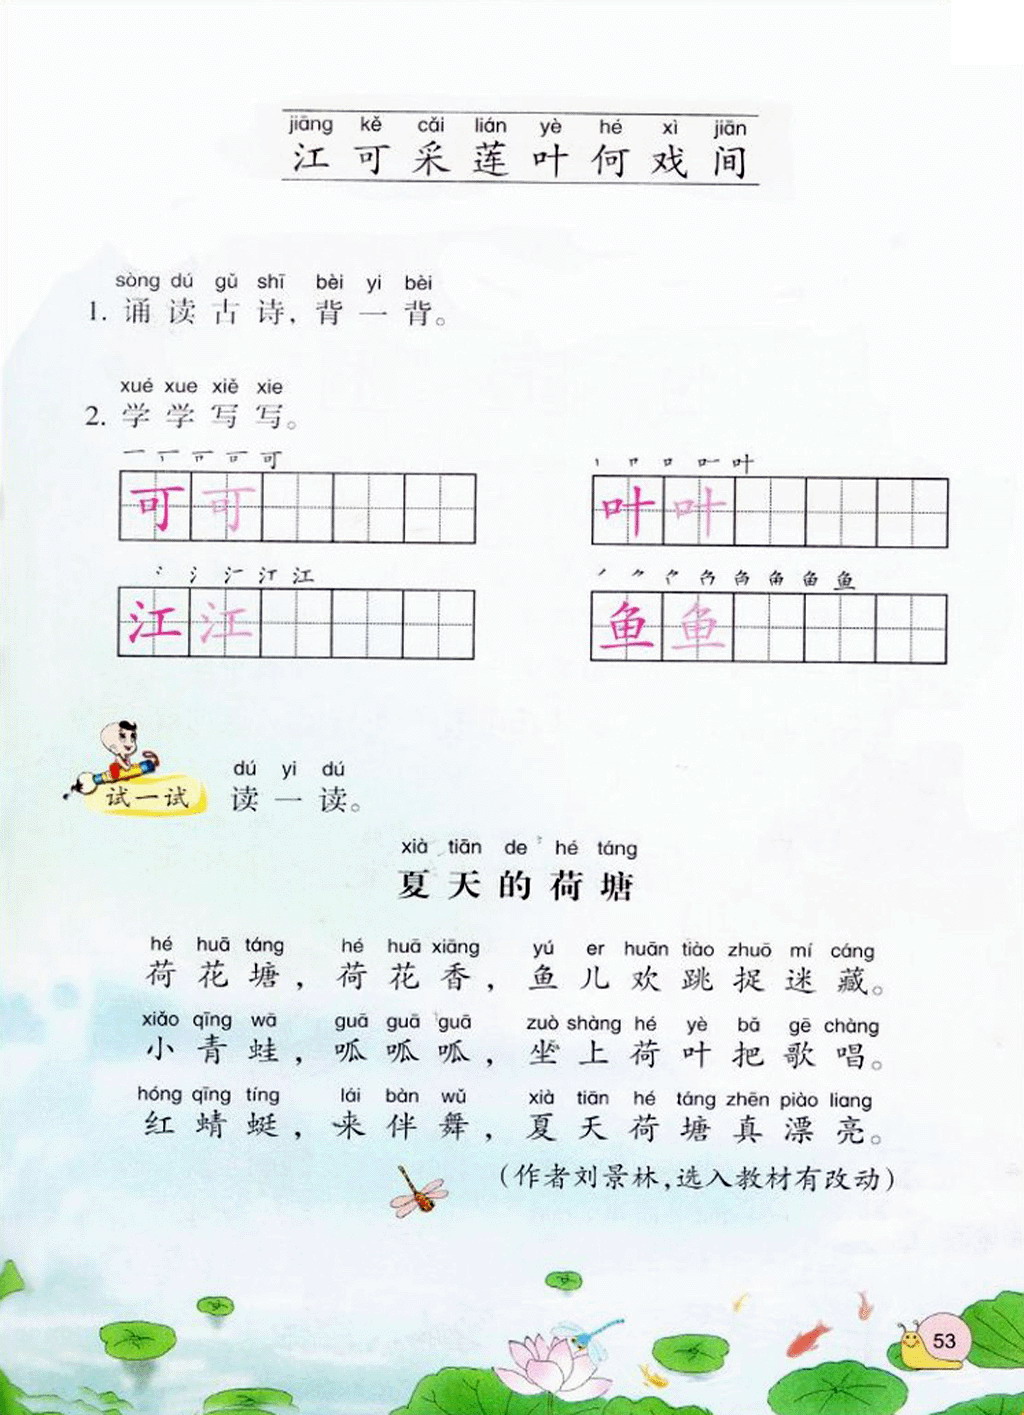 jiāng kě cǎi lián yè hé xì jiān
江可采莲叶何戏间
sòng dú gǔ shī bèi yi bèi
1. 诵读古诗，背一背。
xué xue xiě xie
2. 学学写写。
一 丆 可
可可
丨 口 叶
叶叶
丶 冫 氵 江
江江
丿 鱼
鱼鱼
dú yi dú
试一试 读一读。
xià tiān de hé táng
夏天的荷塘
hé huā táng hé huā xiāng yú er huān tiào zhuō mí cáng
荷花塘，荷花香，鱼儿欢跳捉迷藏。
xiǎo qīng wā guā guā guā zuò shàng hé yè bǎ gē chàng
小青蛙，呱呱呱，坐上荷叶把歌唱。
hóng qīng tíng lái bàn wǔ xià tiān hé táng zhēn piào liang
红蜻蜓，来伴舞，夏天荷塘真漂亮。
（作者刘景林，选入教材有改动）
53